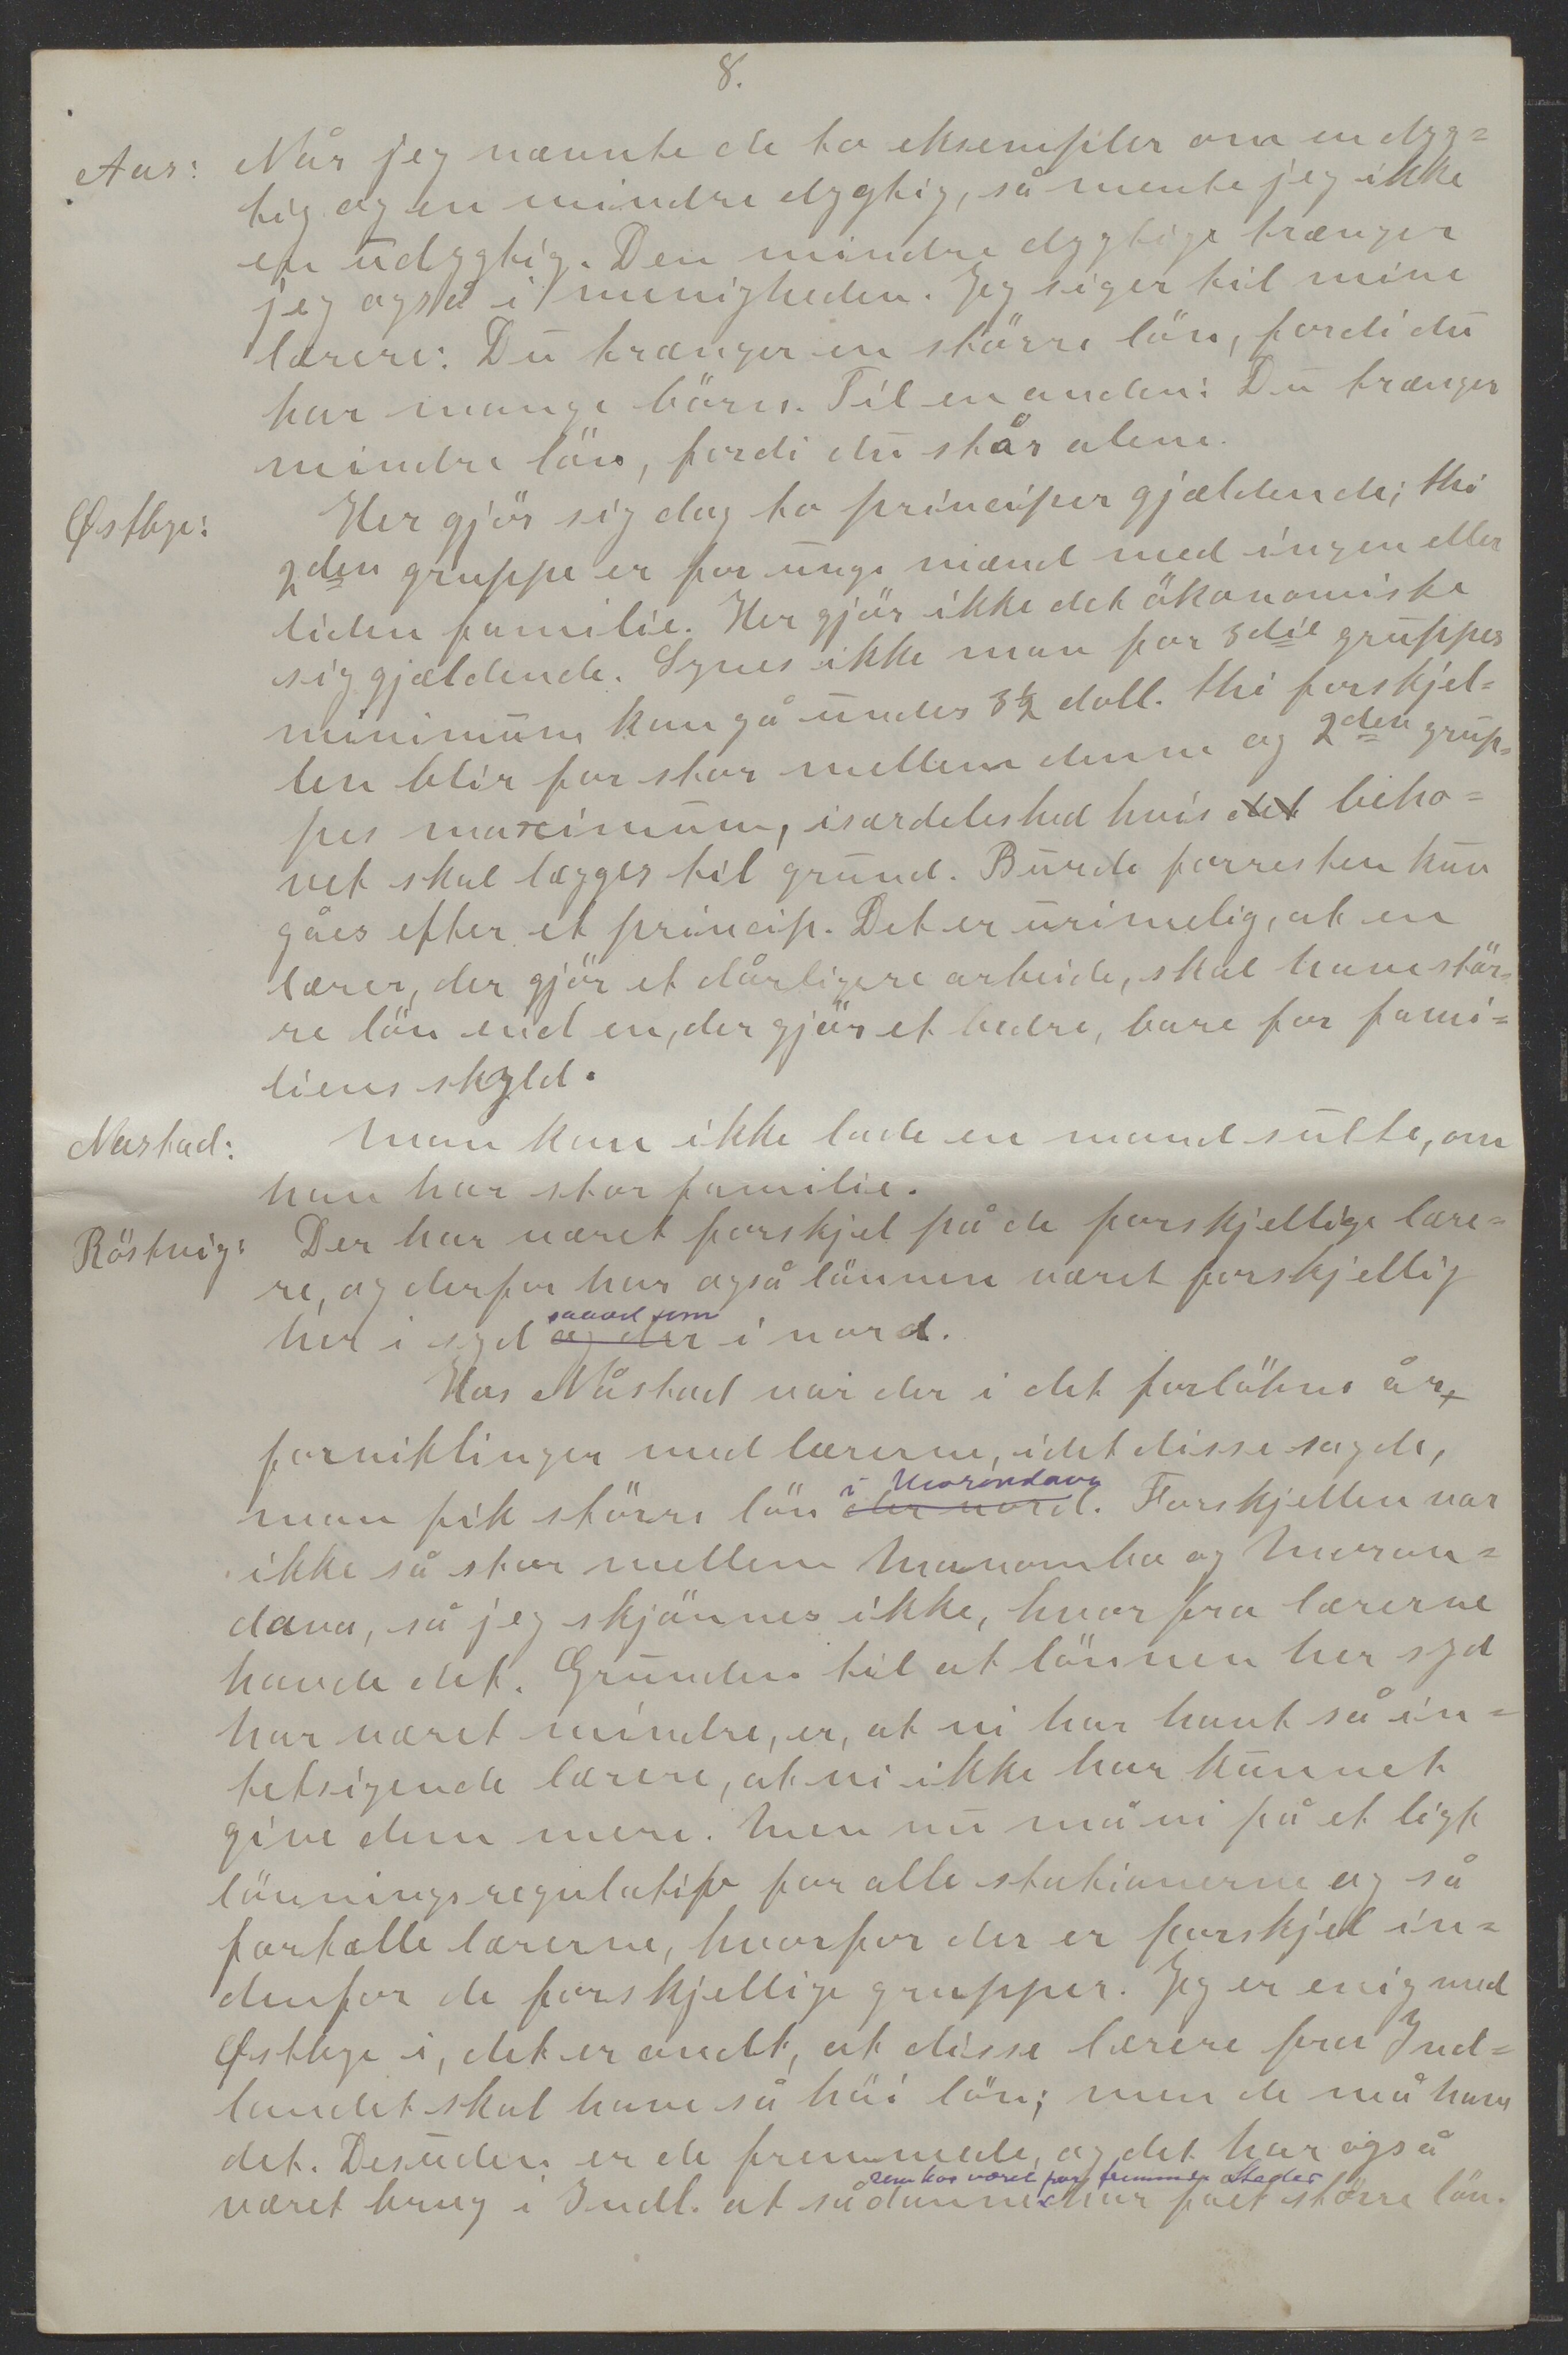 8.
Aas: Når jeg nævnte de to eksempler om en dyg=
tig og en mindre dygtig, så mente jeg ikke
en udygtig. Den mindre dygtige trænger
jeg også i menigheden. Jeg siger til mine
lærere: Du trænger en större lön, fordi du
har mange börn. Til en anden: Du trænger
mindre lön, fordi du står alene.
Østbye: Her gjör sig dog to principer gjældende; thi
2den gruppe er for unge mænd med ingen eller
liden familie. Her gjör ikke det ökonomiske
sig gjældende. Synes ikke man for 3die gruppes
minimum kan gå under 3½ doll. thi forskjel=
len blir for stor mellem denne og 2den grup=
pes maximum, isærdeleshed hvis det beho=
vet skal lægges til grund. Burde forresten kun
gåes efter et princip. Det er urimelig, at en
lærer, der gjör et dårligere arbeide, skal have stör=
re lön end en, der gjör et bedre, bare for fami=
liens skyld.
Nastad: Man kan ikke lade en mand sulte, om
han har stor familie.
Röstvig: Der har været forskjel på de forskjellige lære=
re, og derfor har også lönnen været forskjellig
saavel som
her i syd og der i nord.
Hos Nåstad var der i det forlöbne år
forviklinger med lærerne, idet disse sagde,
i Morondava
man fik större lön der nord. Forskjellen var
ikke så stor mellem Manomba og Moron=
dava, så jeg skjönner ikke, hvor fra lærerne
havde det. Grunden til at lönnen her syd
har været mindre, er, at vi har havt så in=
tetsigende lærere, at vi ikke har kunnet
give dem mere. Men nu må vi få et ligt
lönningsregulatif for alle stationerne og så
fortælle lærerne, hvorfor der er forskjel in=
denfor de forskjellige grupper. Jeg er enig med
Østbye i, det er ondt, at disse lærere fra Ind=
landet skal have så höi lön; men de må have
det. Desuden er de fremmede, og det har også
som har været paa fremmede Steder
været brug i Indl. at sådanne har fået större lön.